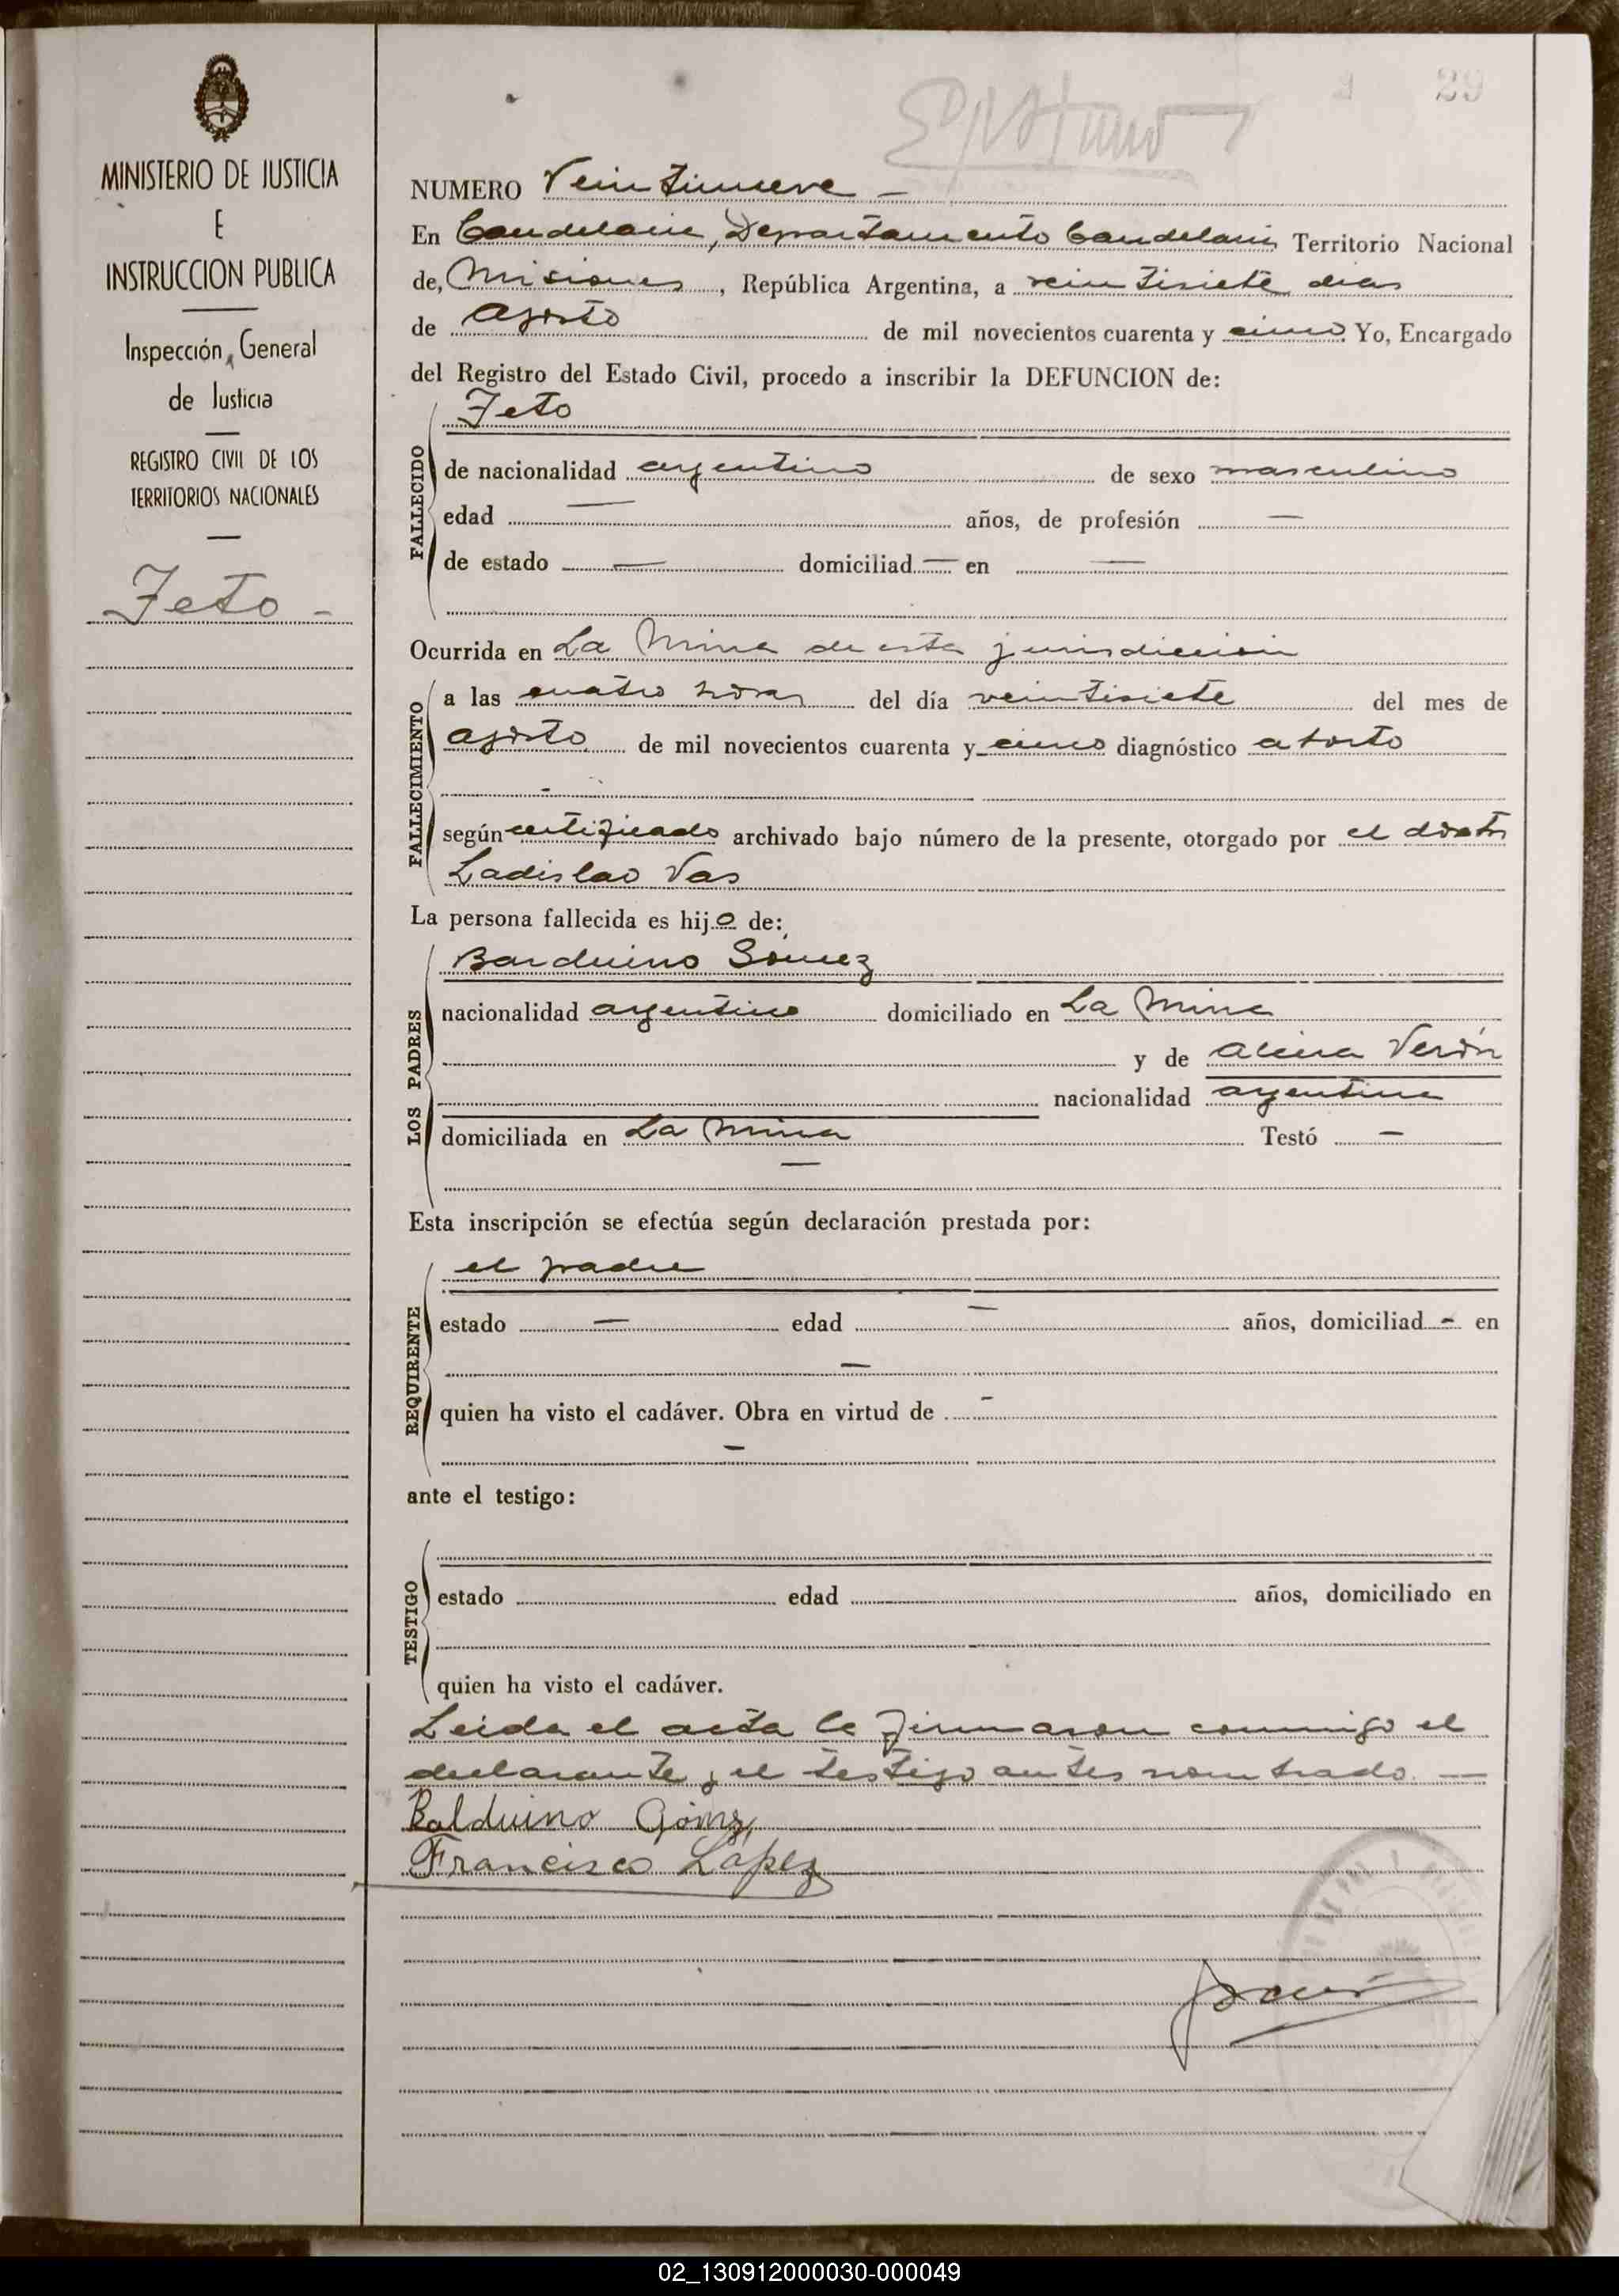 29
MINISTERIO DE JUSTICIA
E
INSTRUCCION PUBLICA
Inspección General
de Justicia
REGISTRO CIVIL DE LOS
TERRITORIOS NACIONALES
Feto -
NUMERO Veintinueve -
En Candelaria, Departamento Candelaria Territorio Nacional
de, Misiones, República Argentina, a veintisiete dias
de Agosto de mil novecientos cuarenta y cinco Yo, Encargado
del Registro del Estado Civil, procedo a inscribir la DEFUNCION de:
Feto
FALLECIDO
de nacionalidad argentino de sexo masculino
edad — años, de profesión —
de estado — domiciliad — en —
Ocurrida en La Mina de esta jurisdiccion
FALLECIMIENTO
a las cuatro horas del día veintisiete del mes de
agosto de mil novecientos cuarenta y cinco diagnóstico aborto
-
según certificado archivado bajo número de la presente, otorgado por el doctor
Ladislao Vas
La persona fallecida es hijo de:
LOS PADRES
Barduino Gómez
nacionalidad argentino domiciliado en La Mina
y de Alcira Verón
nacionalidad argentina
domiciliada en La Mina Testó —
—
Esta inscripción se efectúa según declaración prestada por:
REQUIRENTE
el padre
estado — edad — años, domiciliad - en
—
quien ha visto el cadáver. Obra en virtud de -
-
ante el testigo:
TESTIGO
estado edad años, domiciliado en
quien ha visto el cadáver.
Leida el acta la firmaron conmigo el
declarante y el testigo antes nombrado. —
Balduino Gómz
Francisco Lopez
02_130912000030-000049